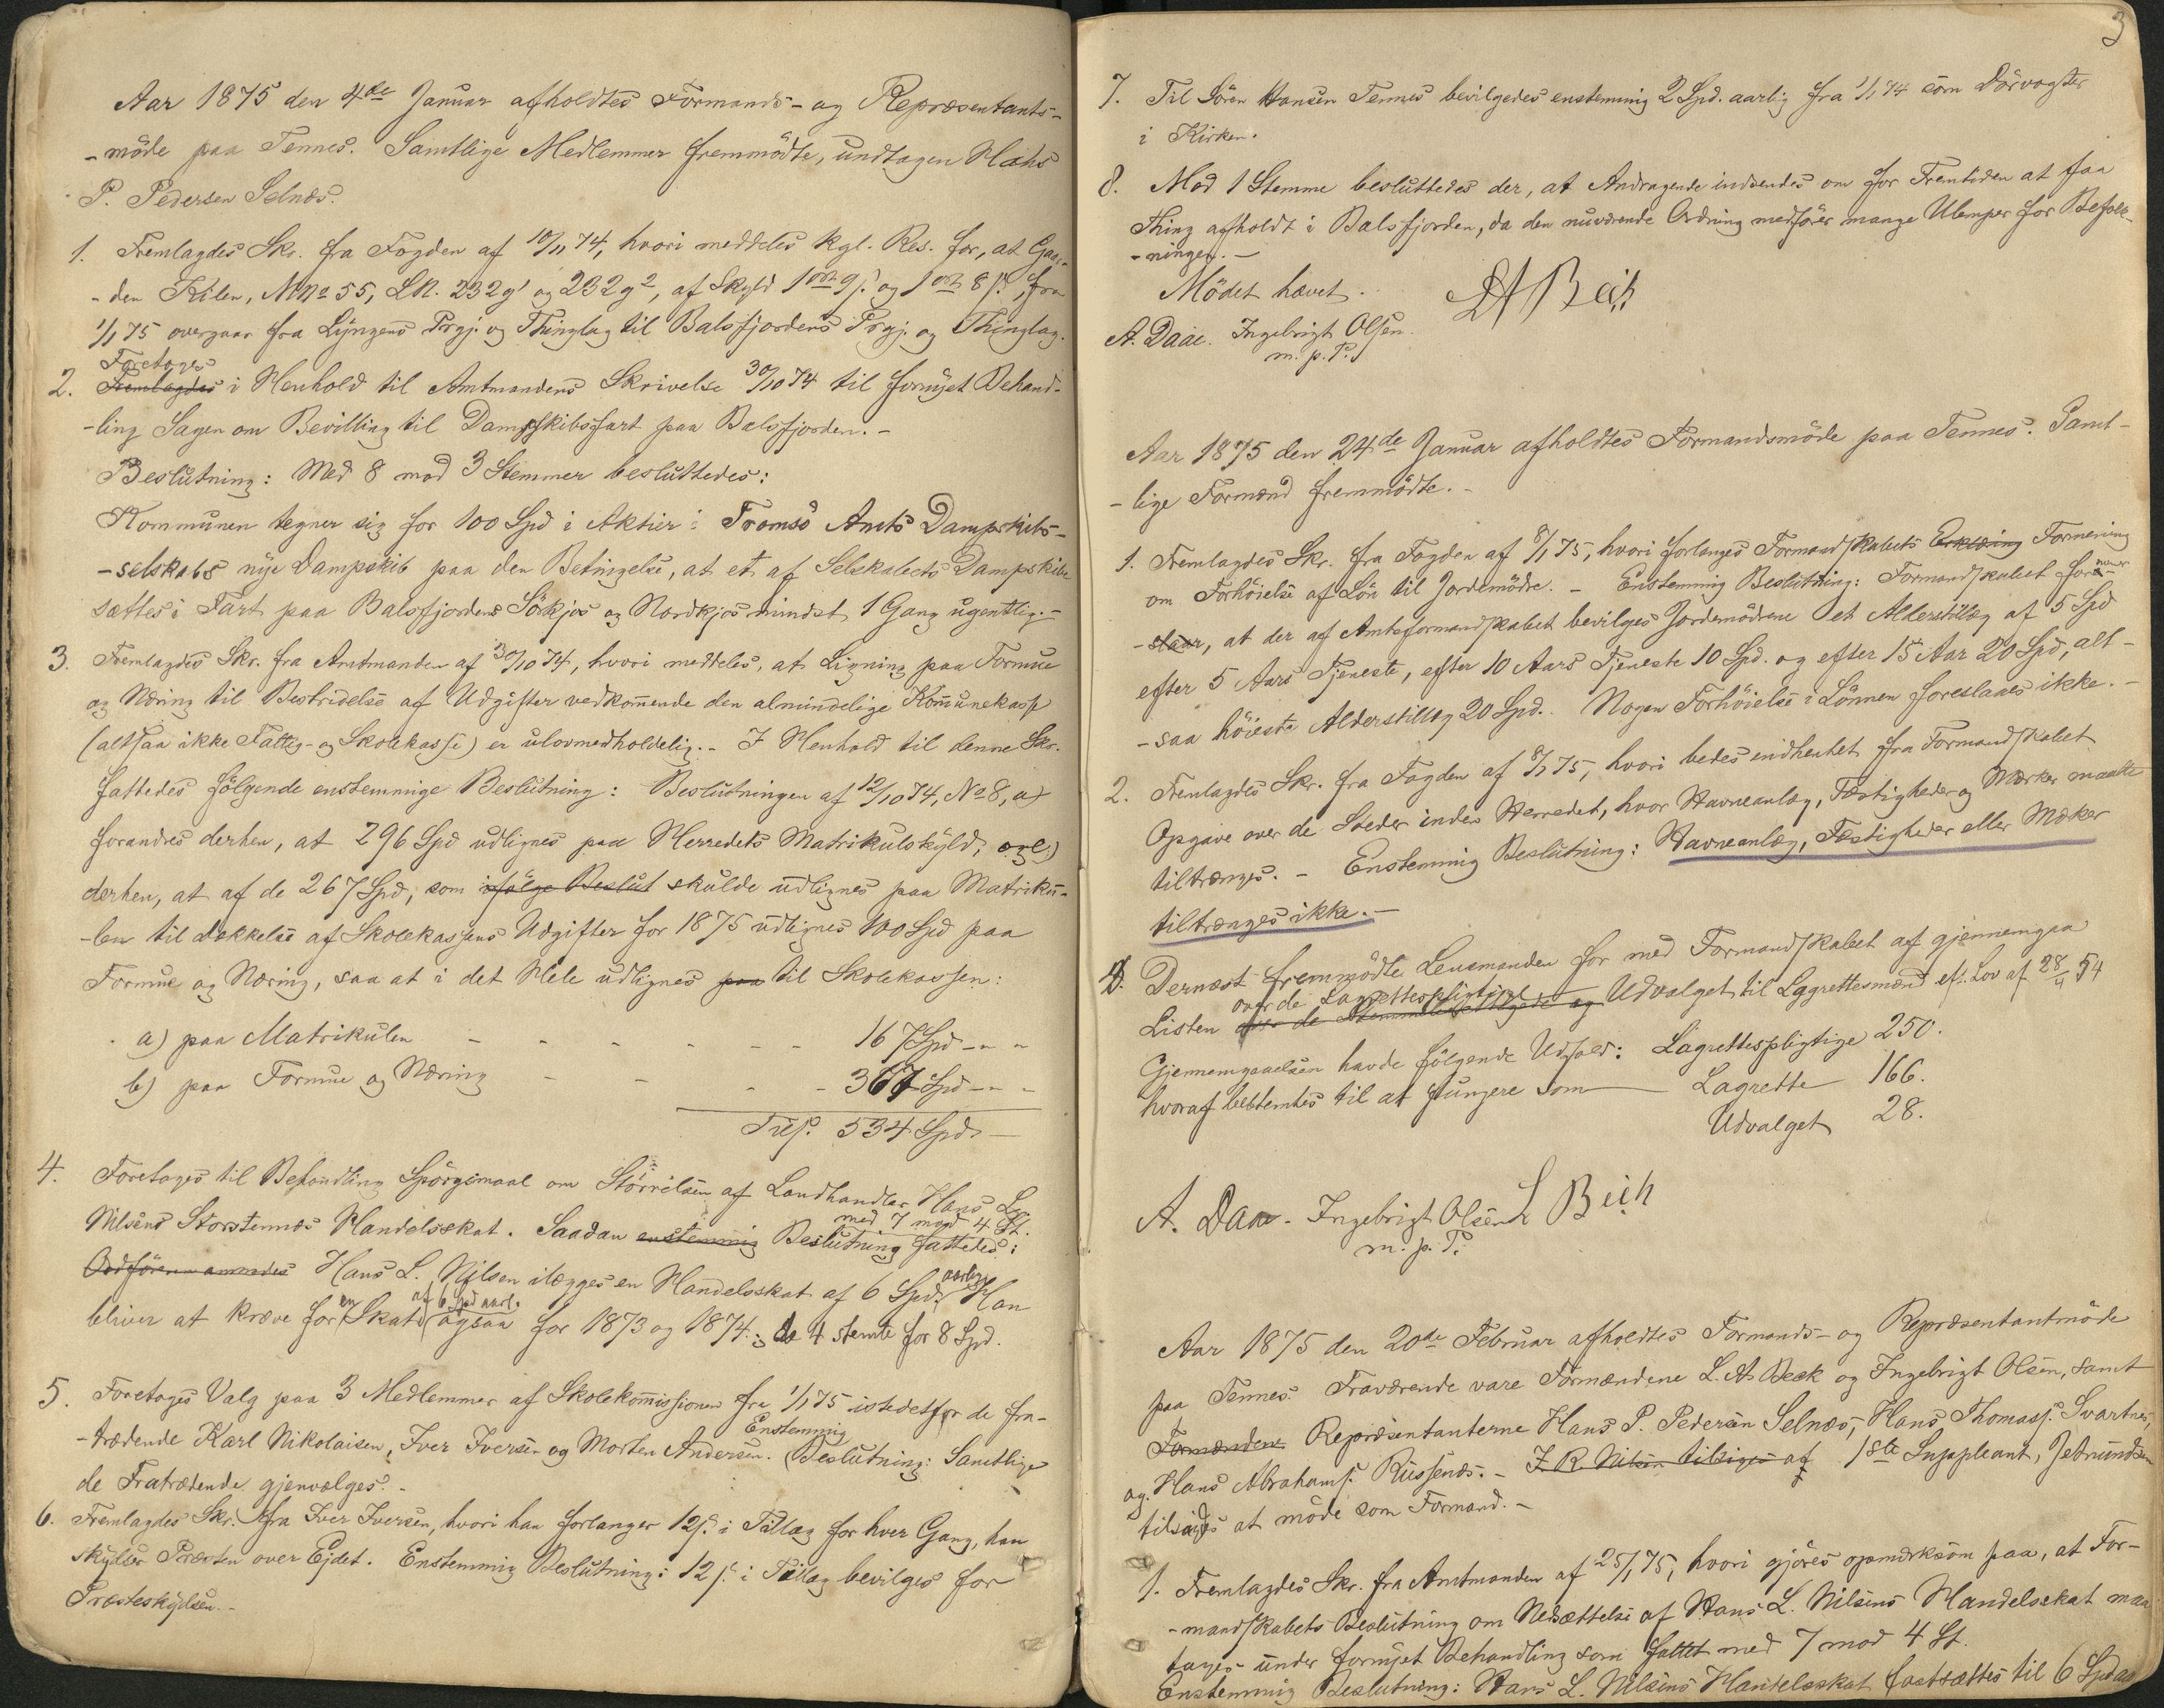 Aar 1875 den 4de Januar afholdtes Formands- og Repræsentants-
-möde paa Tennes. Samtlige Medlemmer fremmödte, undtagen Hans
P. Pedersen Selnæs.
1. Fremlagdes Skr. fra Fogden af 10/11 74, hvori meddeles kgl. Res. for, at Gaar-
-den Kilen, MNo 55, LN. 232g1 og 232g2, af Skyld 1 ort 9 ß. og 1 ort 8 ß., fra
1/1 75 overgaar fra Lyngens Prgj. og Thinglag til Balsfjordens Prgj. og Thinglag.
Foretoges
2. Fremlagdes i Henhold til Amtmandens Skrivelse 30/10 74 til fornyet Behand-
-ling Sagen om Bevilling til Dampskibsfart paa Balsfjorden.-
Beslutning: Med 8 mod 3 Stemmer besluttedes:
Kommunen tegner sig for 100 Spd i Aktier i Tromsö Amts Dampskibs-
-selskabs nye Dampskib paa den Betingelse, at et af Selskabets Dampskibe
sættes i Fart paa Balsfjordens Sökjos og Nordkjos mindst 1 Gang ugentlig.-
3. Fremlagdes Skr. fra Amtmanden af 30/10 74, hvori meddeles, at Ligning paa Formue
og Næring til Bestridelse af Udgifter vedkommende den almindelige Kommunekasse
(altsaa ikke Fattig- og Skolekasse) er ulovmedholdelig.- I Henhold til denne Skr.
fattedes fölgende enstemmige Beslutning: Beslutningen af 12/10 74, No 8, a)
forandres derhen, at 296 Spd udlignes paa Herredets Matrikulskyld, og e)
derhen, at af de 267 Spd, som ifölge Beslut skulde udlignes paa Matriku-
-len til Dækkelse af Skolekassens Udgifter for 1875 udlignes 100 Spd paa
Formue og Næring, saa at i det Hele udlignes paa til Skolekassen:
a) paa Matrikulen - - - - - - 167 Spd - " -
b) paa Formue og Næring - - - - 367 Spd - " -
Tils. 534 Spd -
4. Foretoges til Behandling Spörgsmaal om Störrelsen af Landhandler Hans L.
Nilsens Storstennæs Handelsskat. Saadan enstemmig Beslutning fattedes:
med 7 mod 4 St.
Ordföreren Hans L. Nilsen ilægges en Handelsskat af 6 Spd. aarlig. Han
bliver at kræve for en Skat af 6 Spd aarl. ogsaa for 1873 og 1874; de 4 stemte for 8 Spd.
5. Foretoges Valg paa 3 Medlemmer af Skolekommissionen fra 1/1 75 istedetfor de fra-
-trædende Karl Nikolaisen, Iver Iversen og Morten Andersen. Enstemmig Beslutning: Samtlige
de Fratrædende gjenvælges.-
6. Fremlagdes Skr. fra Iver Iversen, hvori han forlanger 12 ß. i Tillæg for hver Gang, han
skydser Præsten over Ejdet. Enstemmig Beslutning: 12 ß. i Tillæg bevilges for
Præsteskydsen.-
3
7. Til Sören Hansen Tennes bevilgedes enstemmig 2 Spd. aarlig fra 1/1 74 som Dörvogter
i Kirken.
8. Mod 1 Stemme besluttedes der, at Andragende indsendes om for Fremtiden at faa
Thing afholdt i Balsfjorden, da den nuværende Ordning medförer mange Ulemper for Befolk-
-ningen.-
Mödet hævet.
A. Daae. Ingebrigt Olsen LABeck
m. p. P.
Aar 1875 den 24de Januar afholdtes Formandsmöde paa Tennes. Samt-
-lige Formænd fremmödte.-
1. Fremlagdes Skr. fra Fogden af 8/1 75, hvori forlanges Formandskabets Erklæring Formening
om Forhöielse af Lön til Jordemödre.- Enstemmig Beslutning: Formandskabet for-
-slaar, at der af Amtsformandskabet bevilges Jordemödrene et Alderstillæg af 5 Spd
efter 5 Aars Tjeneste, efter 10 Aars Tjeneste 10 Spd. og efter 15 Aar 20 Spd, alt-
-saa höieste Alderstillæg 20 Spd. Nogen Forhöielse i Lönnen foreslaaes ikke.-
2. Fremlagdes Skr. fra Fogden af 8/1 75, hvori bedes indhentet fra Formandskabet
Opgave over de Steder inden Herredet, hvor Havneanlæg, Fæstigheder og Mærker maatte
tiltrænges.- Enstemmig Beslutning: Havneanlæg, Fæstigheder eller Mærker
tiltrænges ikke.-
Dernæst fremmödte Lensmanden for med Formandskabet at gjennemgaa
over de Lagrettespligtige
Listen over de Stemmeberettigede og Udvalget til Lagrettesmænd eft. Lov af 28/4 54
Gjennemgaaelsen havde fölgende Udfald: Lagrettespligtige 250.
hvoraf bestemtes til at fungere som - Lagrette 166.
Udvalget 28.
A. Daae - Ingebrigt Olsen L Beck
m. p. P.
Aar 1875 den 20de Februar afholdtes Formands- og Repræsentantmöde
paa Tennes. Fraværende vare Formændene L. A. Beck og Ingebrigt Olsen, samt
Formændene Repræsentanterne Hans P. Pedersen Selnæs, Hans Thomass. Svartnes,
og Hans Abrahams. Russenes.- J. R. Nilsen tilsiges af 1ste Suppleant,
tilsagdes at möde som Formand.-
1. Fremlagdes Skr. fra Amtmanden af 25/1 75, hvori gjöres opmærksom paa, at For-
-mandskabets Beslutning om Nedsættelse af Hans L. Nilsens Handelsskat maa
tages under fornyet Behandling som fattet med 7 mod 4 St.
Enstemmig Beslutning: Hans L. Nilsens Handelsskat fastsættes til 6 Spd aa